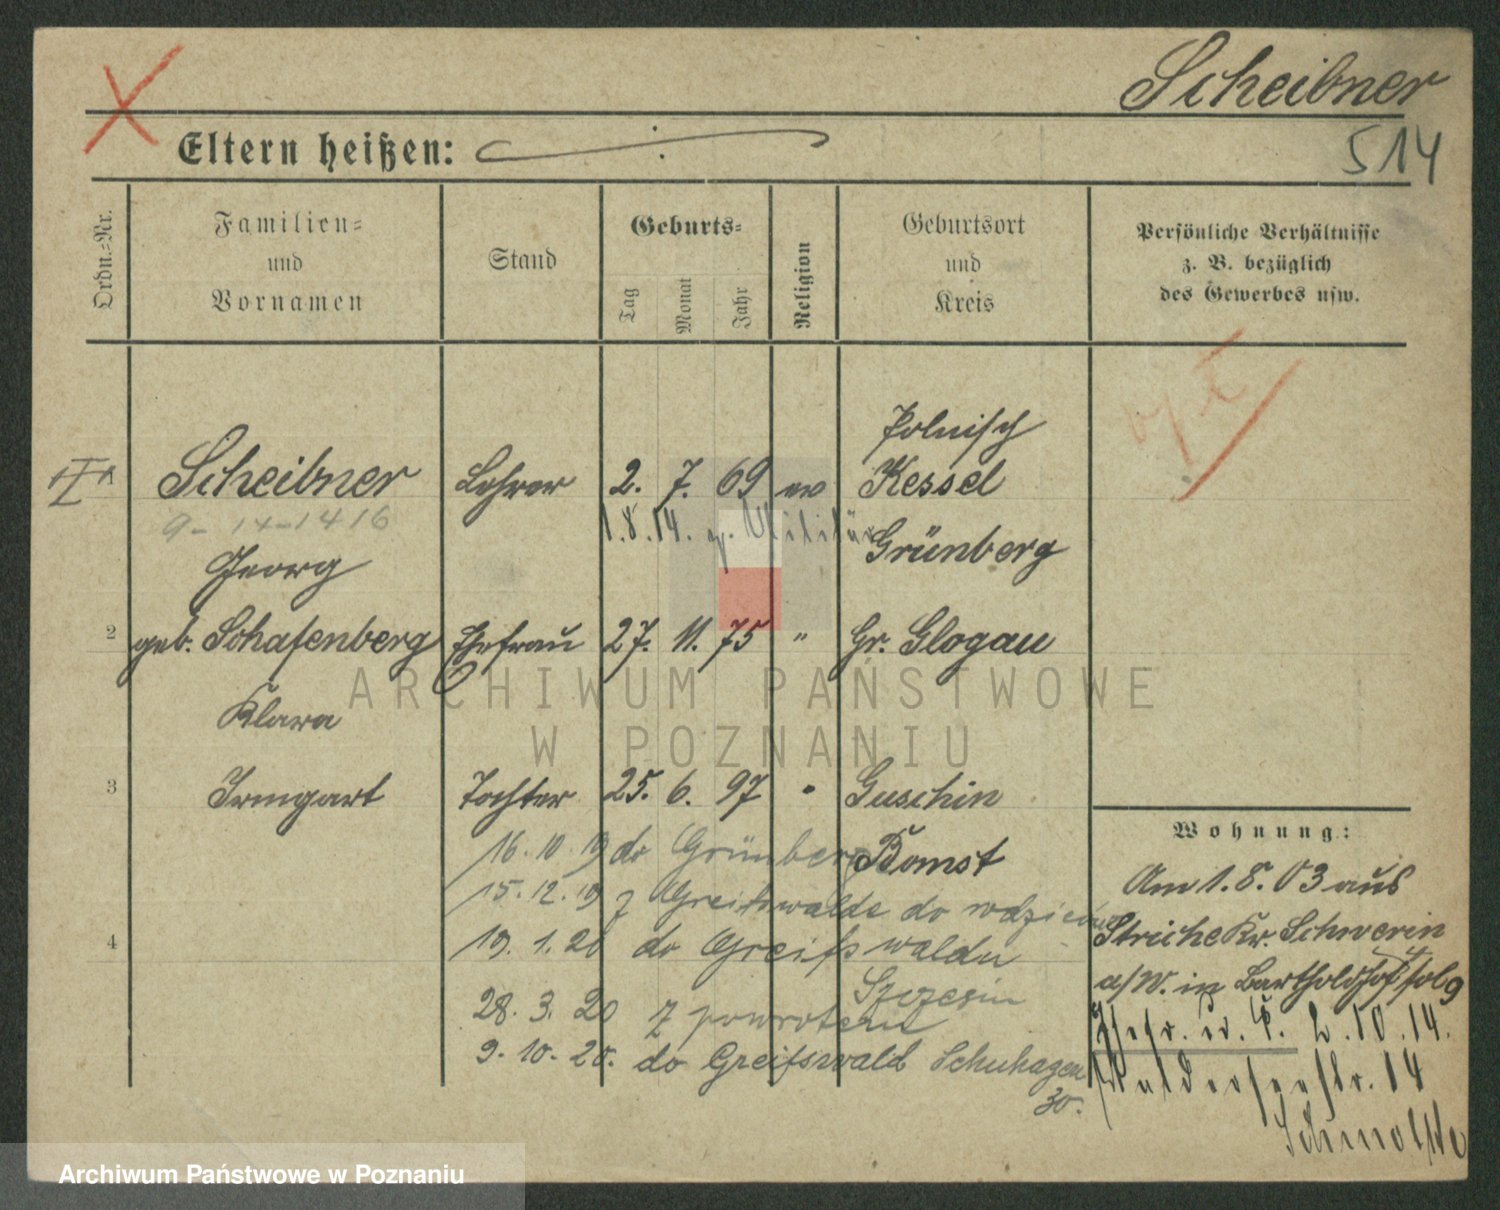 Scheibner
514
Eltern heißen:
Ordn.-Nr.
Familien-
und
Vornamen
Stand
Geburts-
Tag
Monat
Jahr
Religion
Geburtsort
und
Kreis
Persönliche Verhältnisse
z. B. bezüglich
des Gewerbes usw.
Polnisch
Scheibner Lehrer 2. 7. 69 ev Kessel
9-14-1416
1.8.14. z. Militär
Georg Grünberg
2 geb. Schafenberg Ehefrau 27. 11. 75 " Gr. Glogau
Klara
3 Irmgart Tochter 25. 6. 97 " Guschin
16. 10 19 do Grünberg Bomst
15. 12. 19 z Greifswalde do rodziców
4 19. 1. 20 do Greifswaldu
Szczecin
28. 3. 20 z powrotem
9. 10. 20. do Greifswald Schuhagen
30.
Wohnung:
Am 1. 8. 03 aus
Striche Kr. Schwerin
a/W. in
Ehefr. u. T. 2.10.14.
Walderseestr. 14
ARCHIWUM PAŃSTWOWE
W POZNANIU
Archiwum Państwowe w Poznaniu